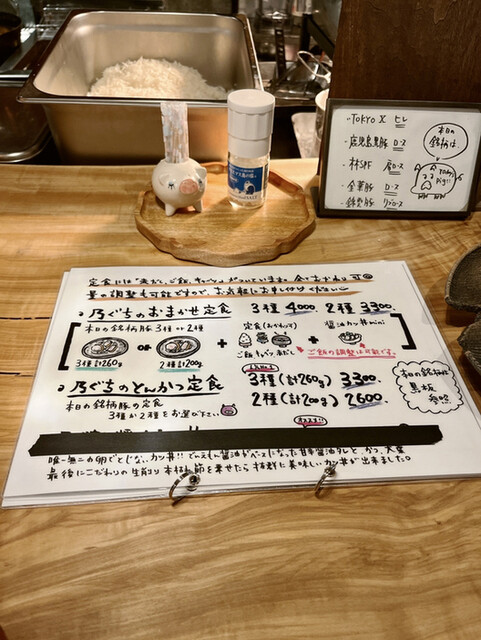 定食には「赤だし、ご飯、キャベツ」がついています。全ておかわり可
量の調整も可能ですので、お気軽にお申し付けください
乃ぐちのおまかせ定食 3種 4000. 2種 3300.
本日の銘柄豚 3種 or 2種
定食(おかわり可)
醤油カツ丼mini
or
+
+
3種 計260g
2種 計200g
ご飯 キャベツ 赤だし
ご飯の調整は可能です。
乃ぐちのとんかつ定食 3種(計260g) 3300.
本日の銘柄豚の定食
3種か2種をお選び下さい。
2種(計200g) 2600.
本日の銘柄は
黒板
参照
唯一無二の卵でとじない、カツ丼!!
最後にこだわりの生削り本枯れ節を乗せたら抜群に美味しいカツ丼が出来ました。
TOKYO X ヒレ
鹿児島黒豚 ロース
林SPF 肩ロース
金華豚 ロース
本日の
銘柄は、